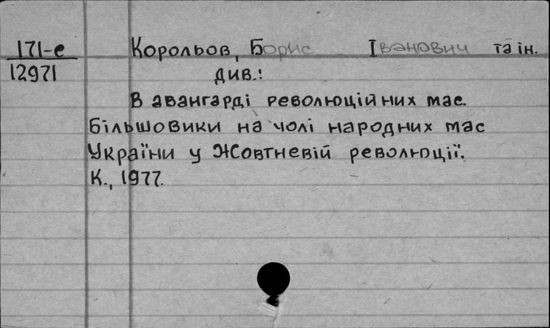 171-е Корольов, Борис Іванович та ін.
12971 див.:
В авангарді революційних мас.
Більшовики на чолі народних мас
України у Жовтневій революції.
К., 1977.